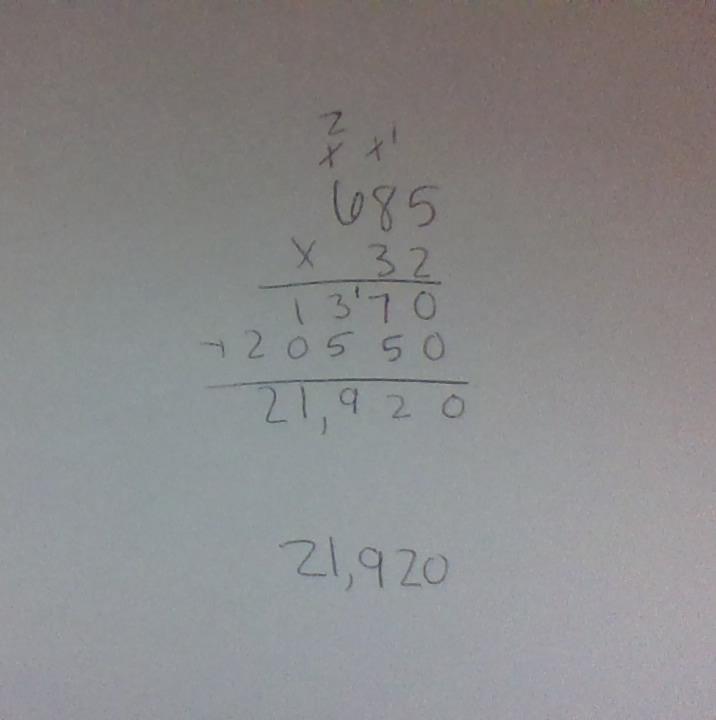 2
x x 1
685
x 32
13'70
+20550
21,920
21,920